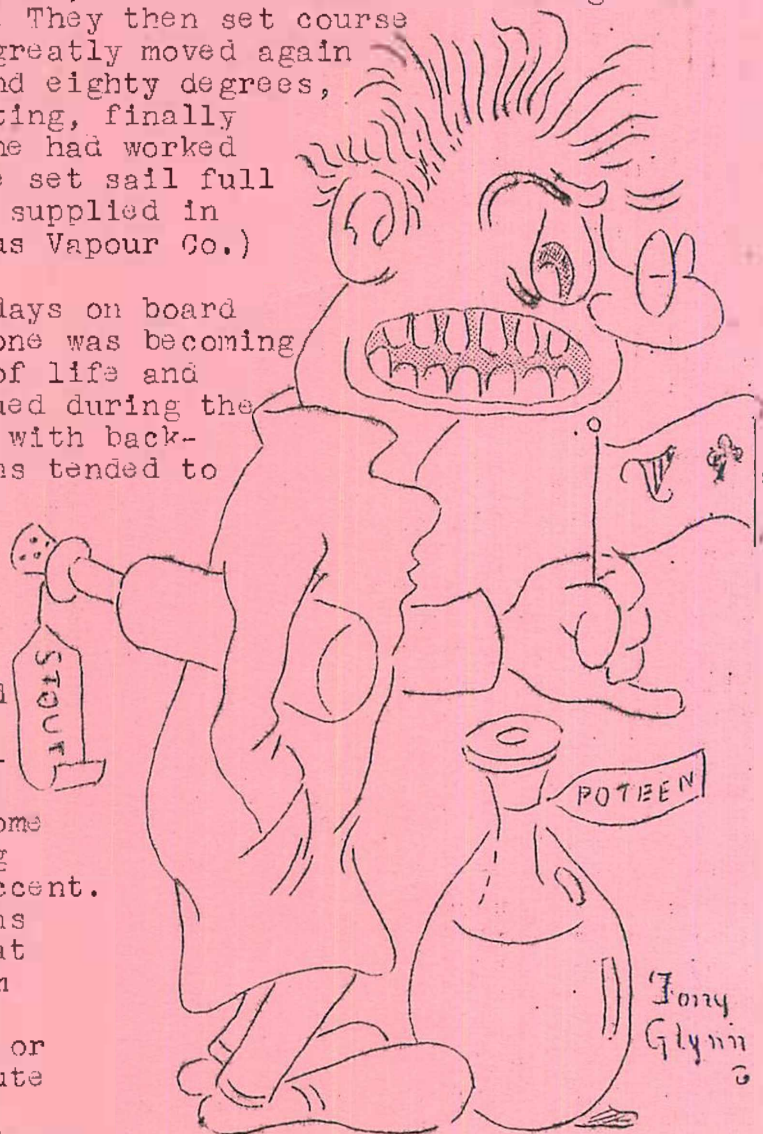 . They then set course
greatly moved again
nd eighty degrees,
ting, finally
he had worked
e set sail full
supplied in
us Vapour Co.)
days on board
one was becoming
of life and
ued during the
with back-
ns tended to
STOUT
d
-
POTEEN
ome
g
ccent.
ns
at
n
or
ute
Tony
Glynn